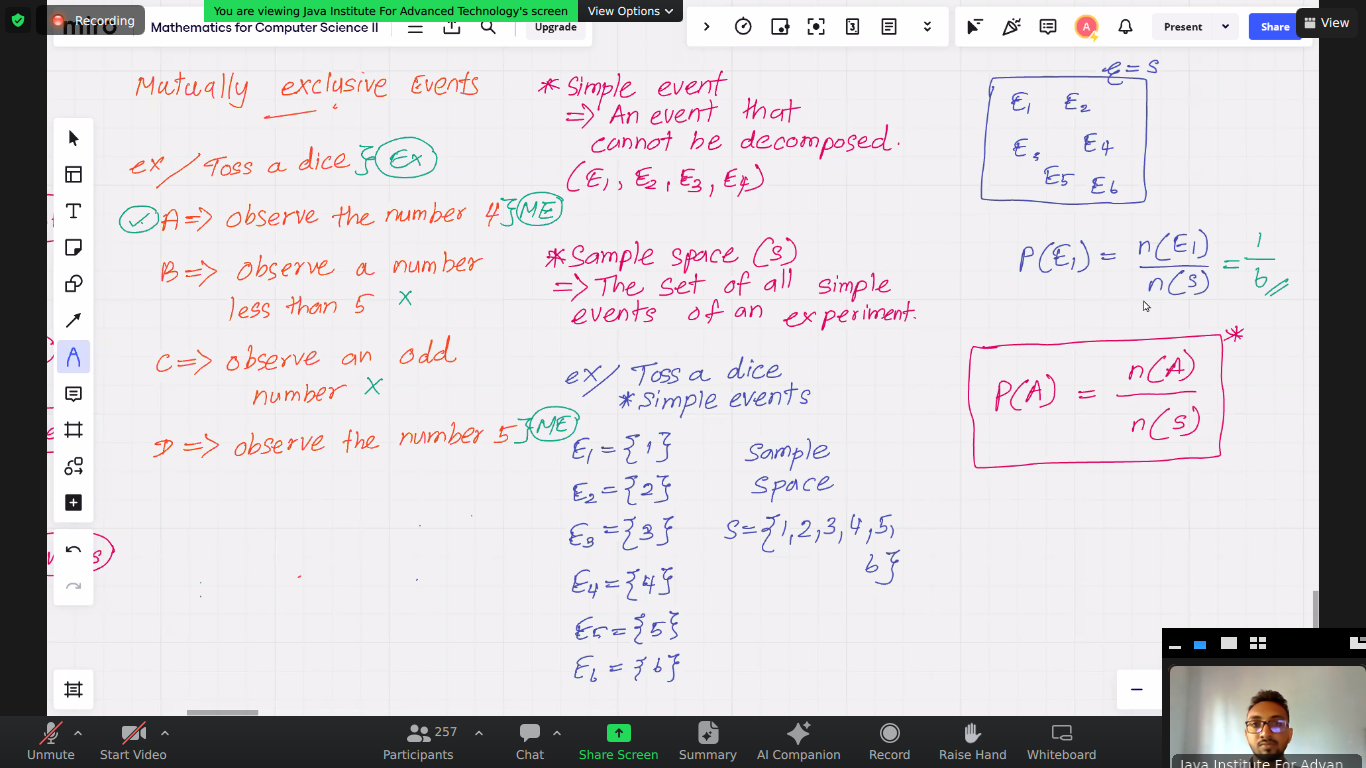 You are viewing Java Institute For Advanced Technology's screen
View Options
Recording
View
miro
Mathematics for Computer Science II
Upgrade
Present
Share
A
3
Mutually exclusive Events
ex/ Toss a dice } Ex
✓ A => observe the number 4 } ME
B => observe a number
less than 5 x
C => observe an odd
number x
D => observe the number 5 } ME
* Simple event
=> An event that
cannot be decomposed.
(E1, E2, E3, E4)
* Sample space (S)
=> The set of all simple
events of an experiment.
ex/ Toss a dice
* Simple events
E1 = {1}
E2 = {2}
E3 = {3}
E4 = {4}
E5 = {5}
E6 = {6}
Sample
Space
S = {1, 2, 3, 4, 5,
6}
ξ = S
E1 E2
E3 E4
E5 E6
P(E1) = n(E1) / n(S) = 1/6
P(A) = n(A) / n(S) *
s)
Unmute
Start Video
Participants
257
Chat
Share Screen
Summary
AI Companion
Record
Raise Hand
Whiteboard
Java Institute For Advan